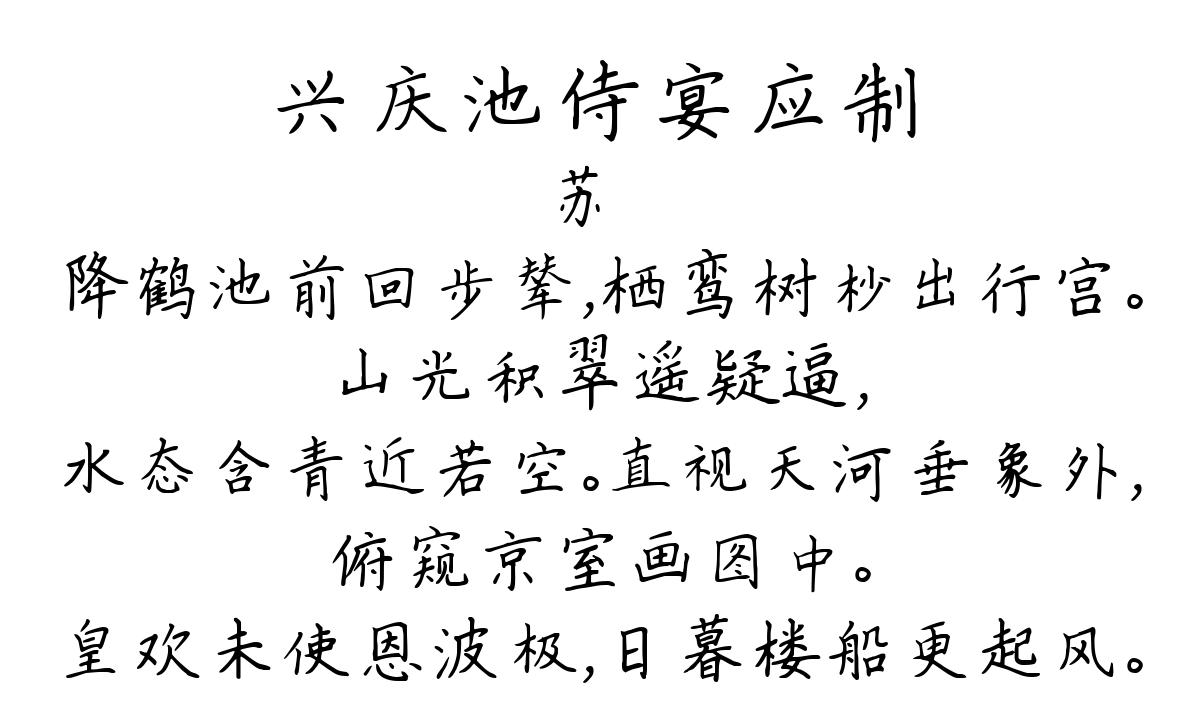 兴庆池侍宴应制
苏
降鹤池前回步辇,栖鸾树杪出行宫。
山光积翠遥疑逼,
水态含青近若空。直视天河垂象外,
俯窥京室画图中。
皇欢未使恩波极,日暮楼船更起风。